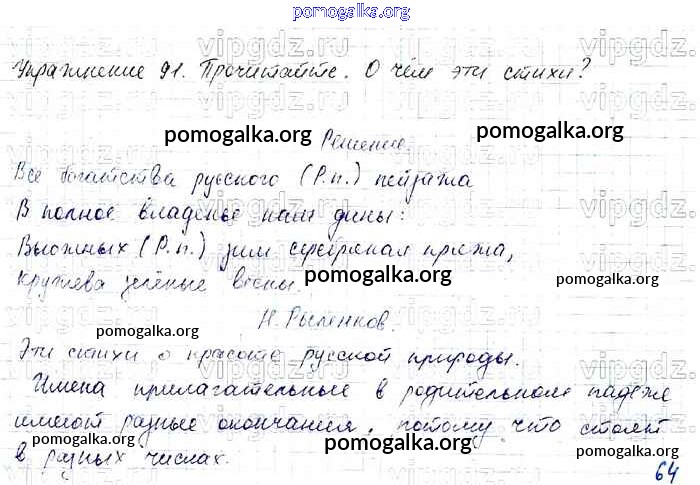 pomogalka.org
Упражнение 91. Прочитайте. О чём эти стихи?
pomogalka.org Решение. pomogalka.org
Все богатства русского (Р.п.) пейзажа
В полное владенье нам даны:
Вьюжных (Р.п.) зим серебряная пряжа,
Кружева зелёные весны. pomogalka.org pomogalka.org
pomogalka.org Н. Рыленков.
Эти стихи о красоте русской природы.
Имена прилагательные в родительном падеже
имеют разные окончания, потому что стоят
pomogalka.org pomogalka.org
в разных числах. pomogalka.org
64
vipgdz.ru